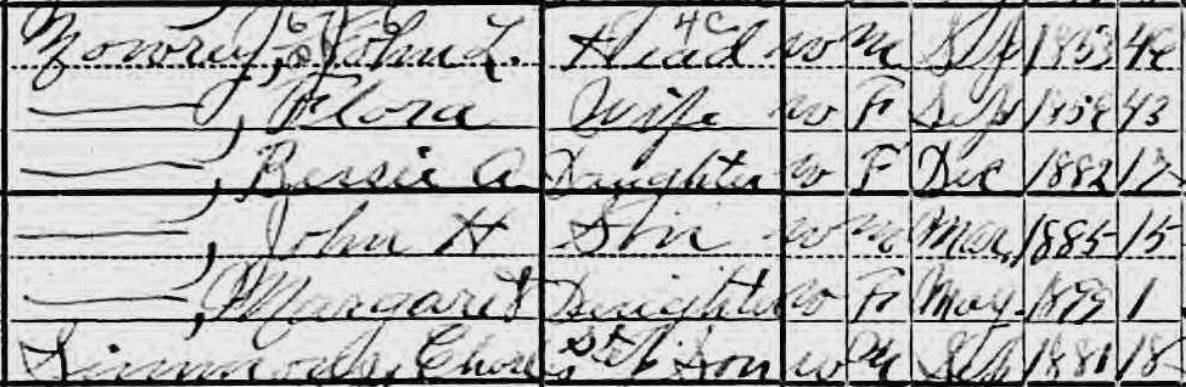 John L. Head W M Sep 1853 46
, Flora Wife W F Sep 43
, Bessie A Daughter W F Dec 1882 17
, John H Son W M Mar 1885 15
, Margaret Daughter W F May 1899 1
Simmons, Step Son W M Sep 1881 18